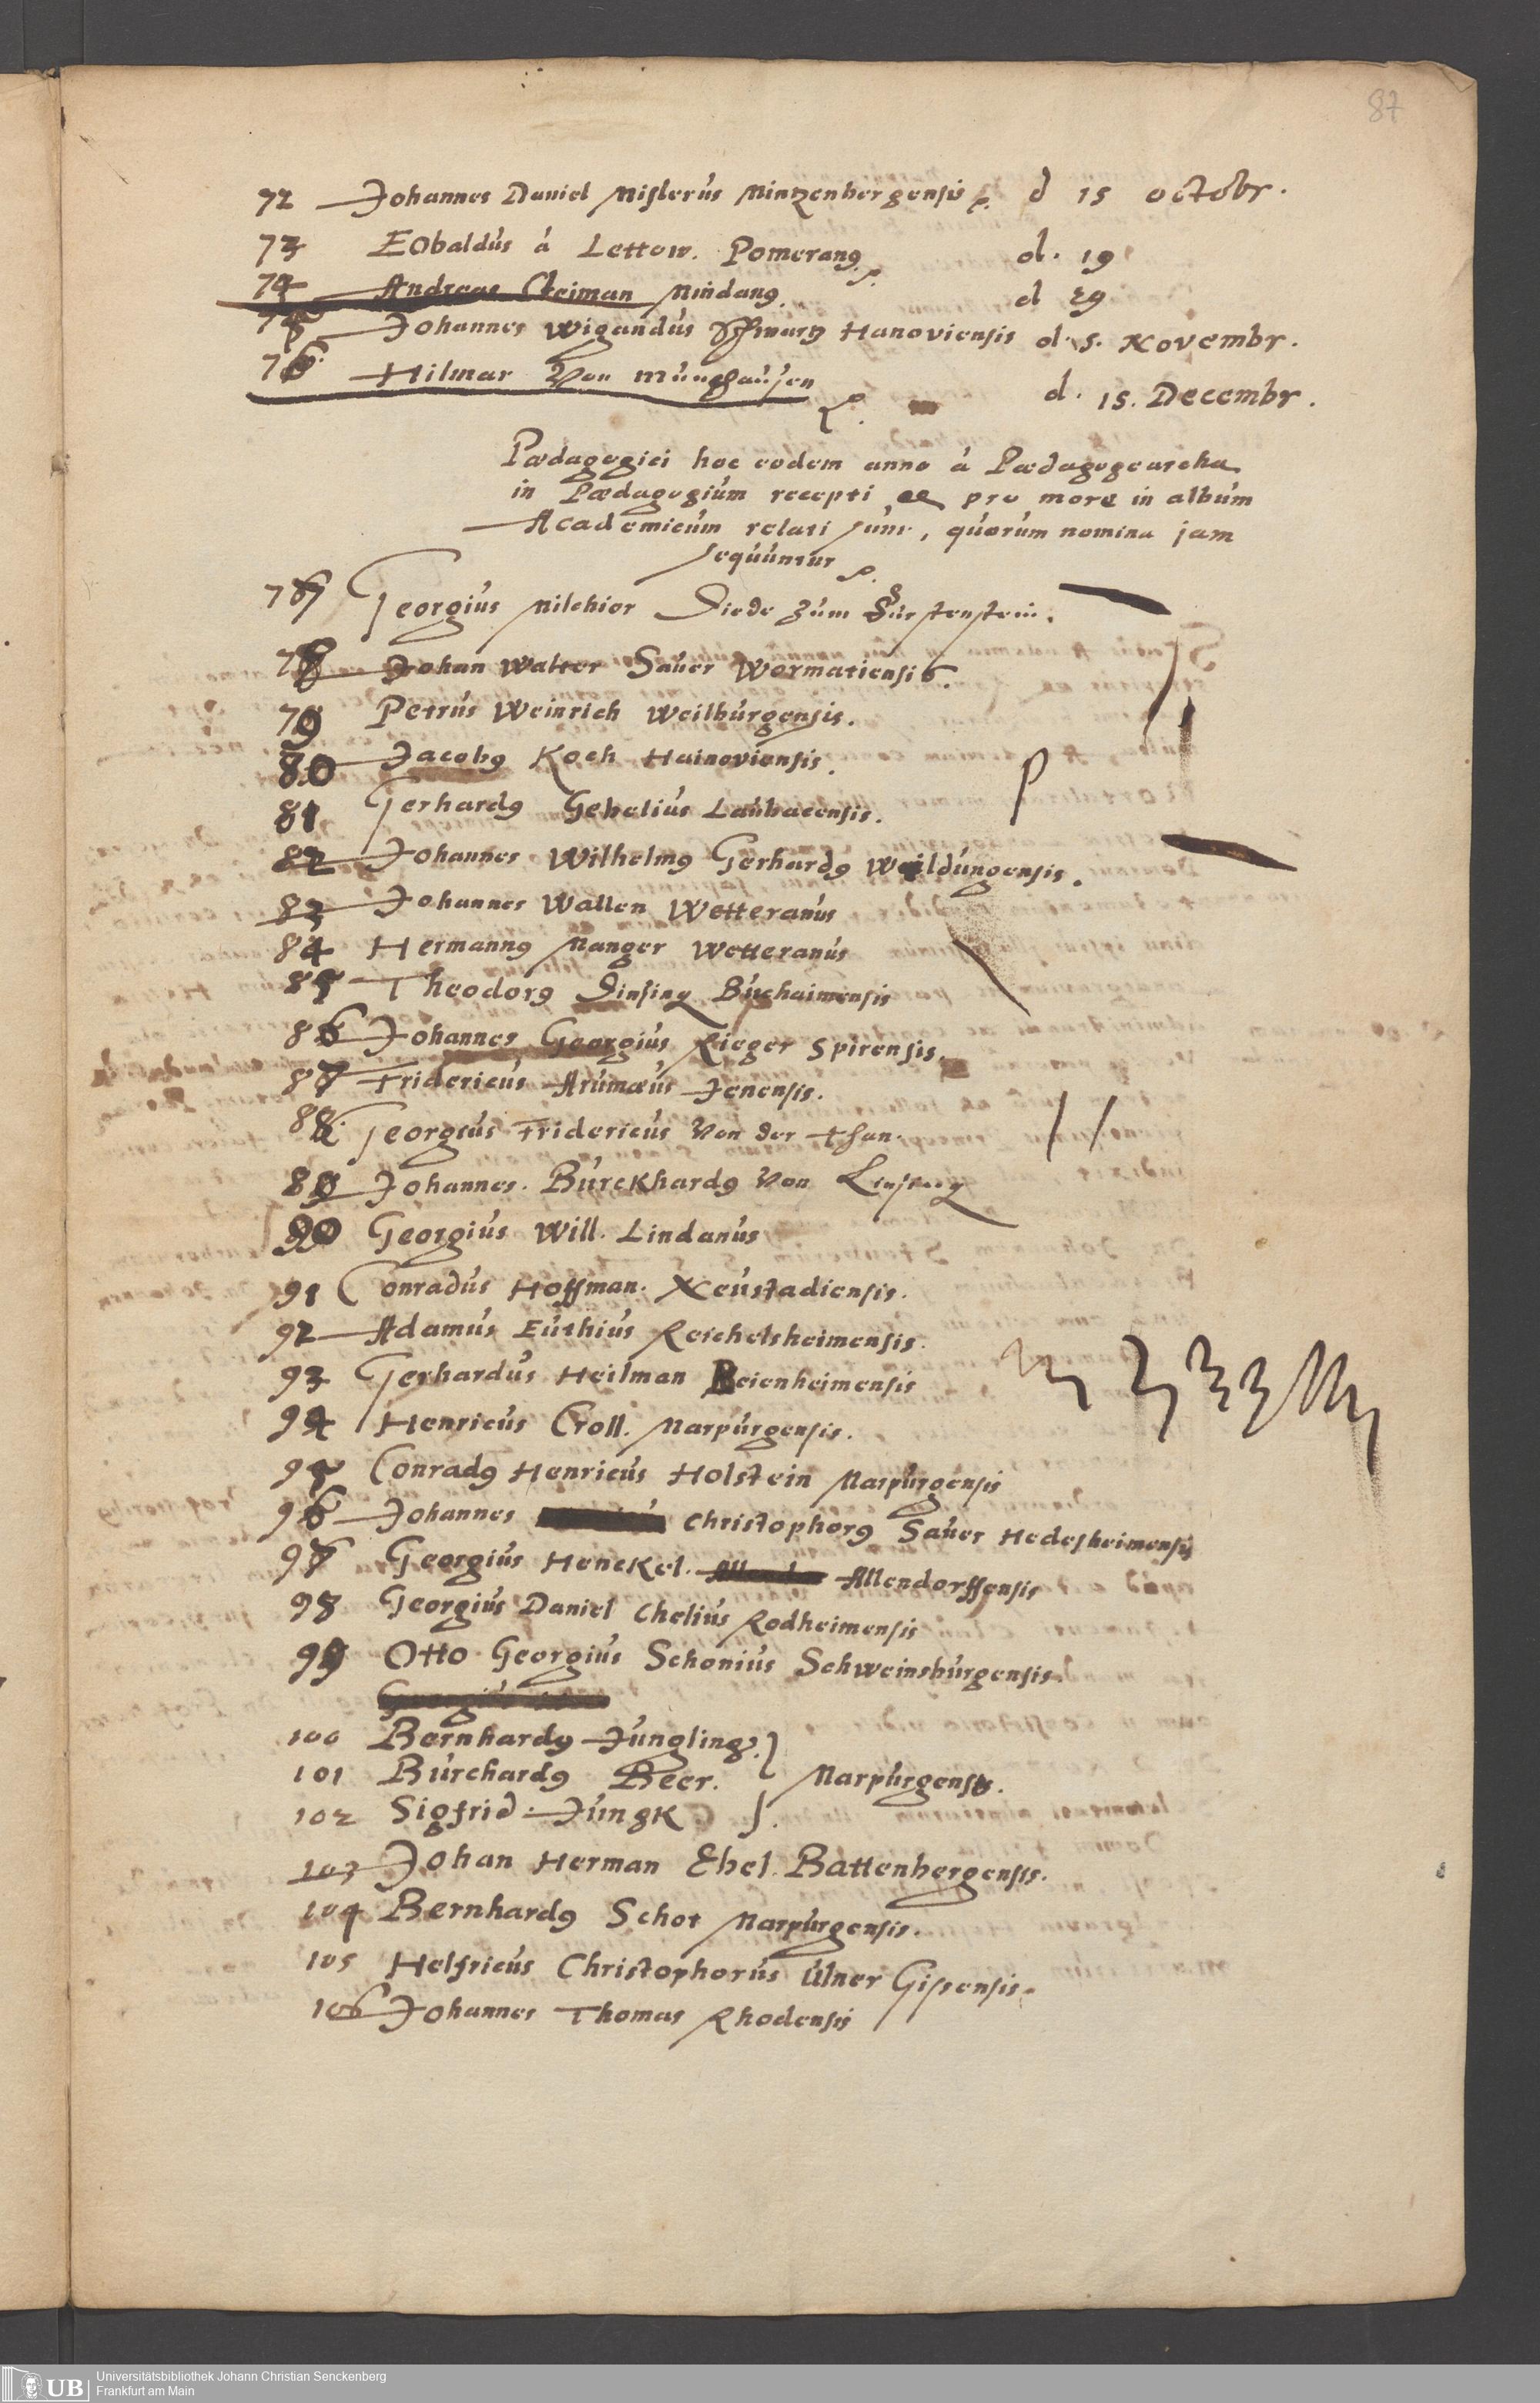 87
72 Johannes Daniel Mislerus Mintzenbergensis d 15 octobr.
73 Eobaldus à Lettow. Pomeranꝰ d. 19
74 Andreas Cleiman Mindanꝰ. d 29
75 Johannes Wigandus Schwartz Hanoviensis d. 5. Novembr.
76. Hilmar Von Münghausen d. 15. Decembr.
Pædagogici hoc eodem anno à Pædagogearcha
in Pædagogium recepti ac pro more in album
Academicum relati sunt, quorum nomina jam
sequuntur
77 Georgius Milchior Diede zum Furstenstein.
78 Johan Walter Sauer Wormatiensis.
79 Petrus Weinrich Weilburgensis.
80 Jacobꝰ Koch Hainoviensis.
81 Gerhardꝰ Gebelius Laubacensis.
82 Johannes Wilhelmꝰ Gerhardꝰ Weildungensis.
83 Johannes Wallen Wetteranus
84 Hermannꝰ Manger Wetteranus
85 Theodorꝰ Dinsing Buchaimensis
86 Johannes Georgius Rieger Spirensis.
87 Fridericus Arumæus Jenensis.
88. Georgius Fridericus Von der Than.
89 Johannes. Burckhardꝰ Von
90 Georgius Will. Lindanus
91 Conradus Hoffman. Neustadiensis.
92 Adamus Euthius Reichelsheimensis.
93 Gerhardus Heilman Beienheimensis
94 Henricus Croll. Marpurgensis.
95 Conradꝰ Henricus Holstein Marpurgensis
96 Johannes Christophorꝰ Sauer Hedesheimensis
97 Georgius Henckel. Allendorffensis
98 Georgius Daniel Chelius Rodheimensis
99 Otto Georgius Schonius Schweinsburgensis.
Georgius
100 Bernhardꝰ Jungling.
101 Burchardꝰ Beer. Marpurgenses.
102 Sigfrid. Jungk
103 Johan Herman Ebel. Battenbergensis.
104 Bernhardꝰ Schot Marpurgensis.
105 Helfricus Christophorus Ulner Gissensis.
106 Johannes Thomas Rhodensis
UB
Universitätsbibliothek Johann Christian Senckenberg
Frankfurt am Main